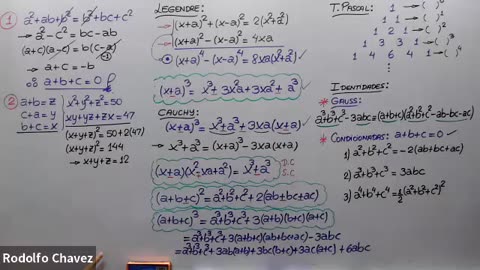 ① a²+ab+b² = b²+bc+c²
→ a²-c² = bc-ab
(a+c)(a-c) = b(c-a)
-1
→ a+c = -b
∴ a+b+c = 0
② a+b=z
c+a=y
b+c=x
x²+y²+z²=50
xy+yz+xz=47
(x+y+z)²=50+2(47)
(x+y+z)²=144
→ x+y+z=12
LEGENDRE:
→ (x+a)²+(x-a)²=2(x²+a²)
→ (x+a)²-(x-a)²=4xa
(x+a)⁴-(x-a)⁴=8xa(x²+a²)
(x±a)³= x³±3x²a+3xa²±a³
CAUCHY:
(x±a)³= x³±a³±3xa(x±a)
→ x³+a³=(x+a)³-3xa(x+a)
(x±a)(x²∓xa+a²)=x³±a³
D.C
S.C
(a+b+c)²=a²+b²+c²+2(ab+bc+ac)
(a+b+c)³=a³+b³+c³+3(a+b)(b+c)(a+c)
=a³+b³+c³+3(a+b+c)(ab+bc+ac)-3abc
=a³+b³+c³+3ab(a+b)+3bc(b+c)+3ac(a+c)+6abc
T. PASCAL:
1 → ( )⁰
1 1 → ( )¹
1 2 1 → ( )²
1 3 3 1 → ( )³
1 4 6 4 1 → ( )⁴
IDENTIDADES:
* GAUSS:
a³+b³+c³-3abc=(a+b+c)(a²+b²+c²-ab-bc-ac)
* CONDICIONADAS: a+b+c=0
1) a²+b²+c²=-2(ab+bc+ac)
2) a³+b³+c³=3abc
3) a⁴+b⁴+c⁴=½(a²+b²+c²)²
Rodolfo Chavez